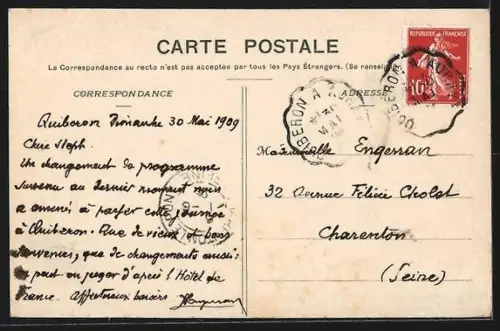 CARTE POSTALE
La Correspondance au recto n'est pas acceptée par tous les Pays Étrangers. (Se renseign
CORRESPONDANCE
ADRESSE
REPUBLIQUE FRANÇAISE
10
QUIBERON A AURAY
QUIBERON A AURAY
CHARENTON
Quiberon Dimanche 30 Mai 1909
Chère Steph.
Un changement de programme
survenu au dernier moment nous
a amenés à passer cette journée
à Quiberon. Que de vieux et bons
souvenirs, que de changements aussi:
on peut en juger d'après l'Hôtel de
France. Affectueux baisers
Mademoiselle Engerran
32 Avenue Félicie Cholet
Charenton
(Seine)